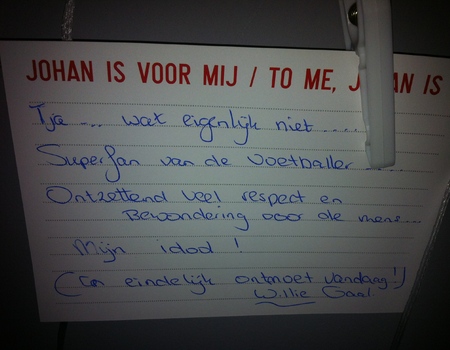 JOHAN IS VOOR MIJ / TO ME, J AN IS
Tja ... wat eigenlijk niet ....
Superfan van de voetballer ....
Ontzettend veel respect en
Bewondering voor de mens...
Mijn idool !
(En eindelijk ontmoet vandaag!)
Willie